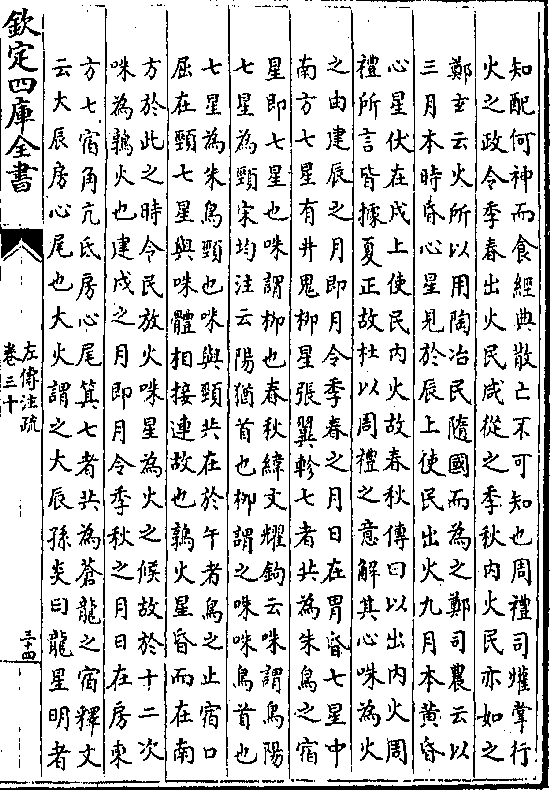 知配何神而食經典散亡不可知也周禮司爟掌行
火之政令季春出火民咸從之季秋内火民亦如之
鄭玄云火所以用陶冶民隨國而為之鄭司農云以
三月本時昏心星見於辰上使民出火九月本黄昏
心星伏在戌上使民内火故春秋傳曰以出内火周
禮所言皆據夏正故杜以周禮之意解其心咮為火
之由建辰之月即月令季春之月日在胃昏七星中
南方七星有井鬼柳星張翼軫七者共為朱鳥之宿
星即七星也咮謂柳也春秋緯文耀鉤云咮謂鳥陽
七星為頸宋均注云陽猶首也柳謂之咮咮鳥首也
七星為朱鳥頸也咮與頸共在於午者鳥之止宿口
屈在頸七星與咮體相接連故也鶉火星昏而在南
方於此之時令民放火咮星為火之候故於十二次
咮為鶉火也建戌之月即月令季秋之月日在房東
方七宿角亢氐房心尾箕七者共為蒼龍之宿釋文
云大辰房心尾也大火謂之大辰孫炎曰龍星明者
欽定四庫全書
左傳注疏
卷三十
三十四